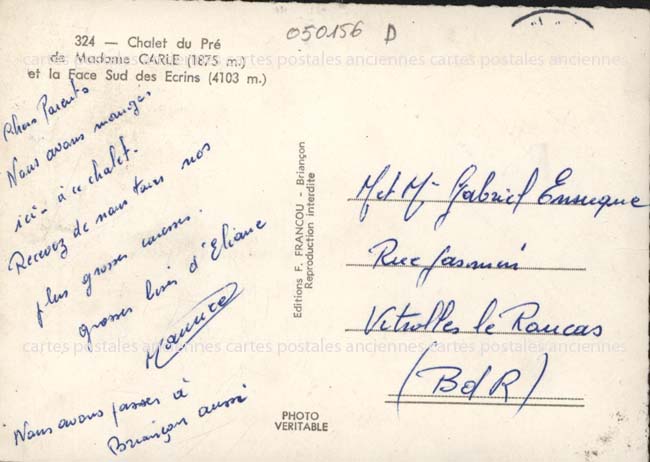 050156 D
324 — Chalet du Pré
de Madame CARLE (1875 m.)
et la Face Sud des Ecrins (4103 m.)
Chers Parents
Nous avons mangés
ici à ce chalet.
Recevez de nous tous nos
plus grosses caresses.
grosses bises d'Eliane
Maurice
Nous avons passés à
Briançon aussi
Editions F. FRANCOU - Briançon
Reproduction interdite
PHOTO
VERITABLE
M et Mme Gabriel
Rue Jasmin
Vitrolles le Roucas
(BdR)
cartes postales anciennes cartes postales anciennes cartes postales anciennes
cartes postales anciennes cartes postales anciennes cartes postales anciennes